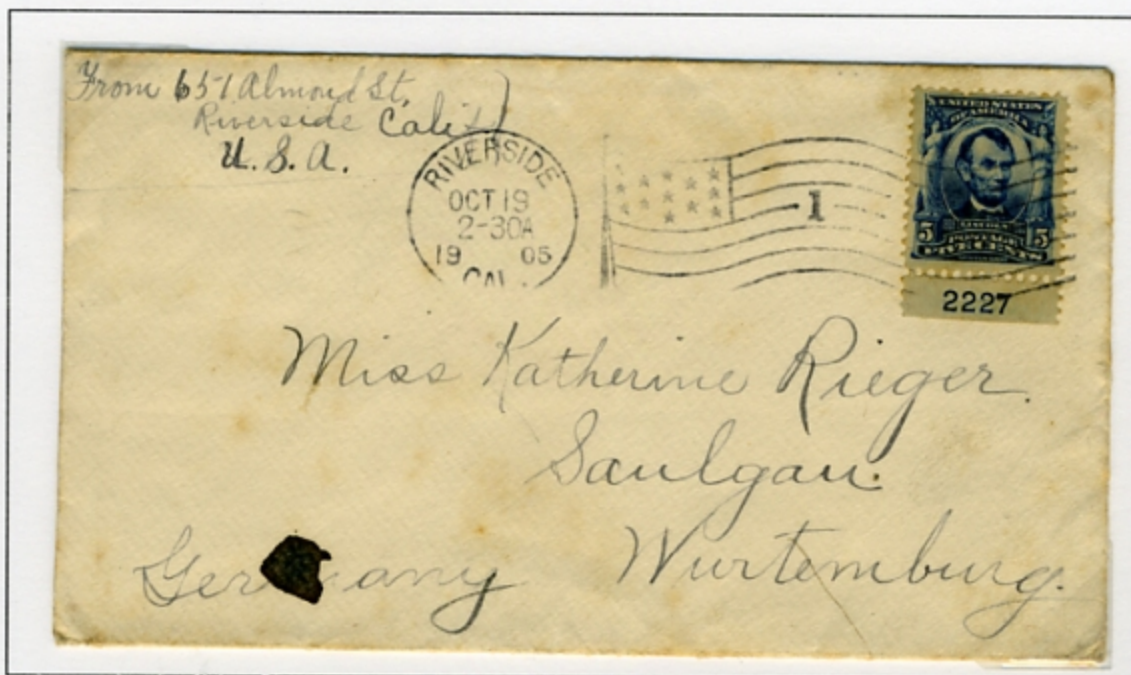 From 651 Almond St,
Riverside Calif
U. S. A.
RIVERSIDE
OCT 19
2-30A
19 05
CAL.
1
UNITED STATES
OF AMERICA
LINCOLN
5 POSTAGE 5
FIVE CENTS
2227
Miss Katherine Rieger.
Saulgau.
Wurtemburg.
Ger any